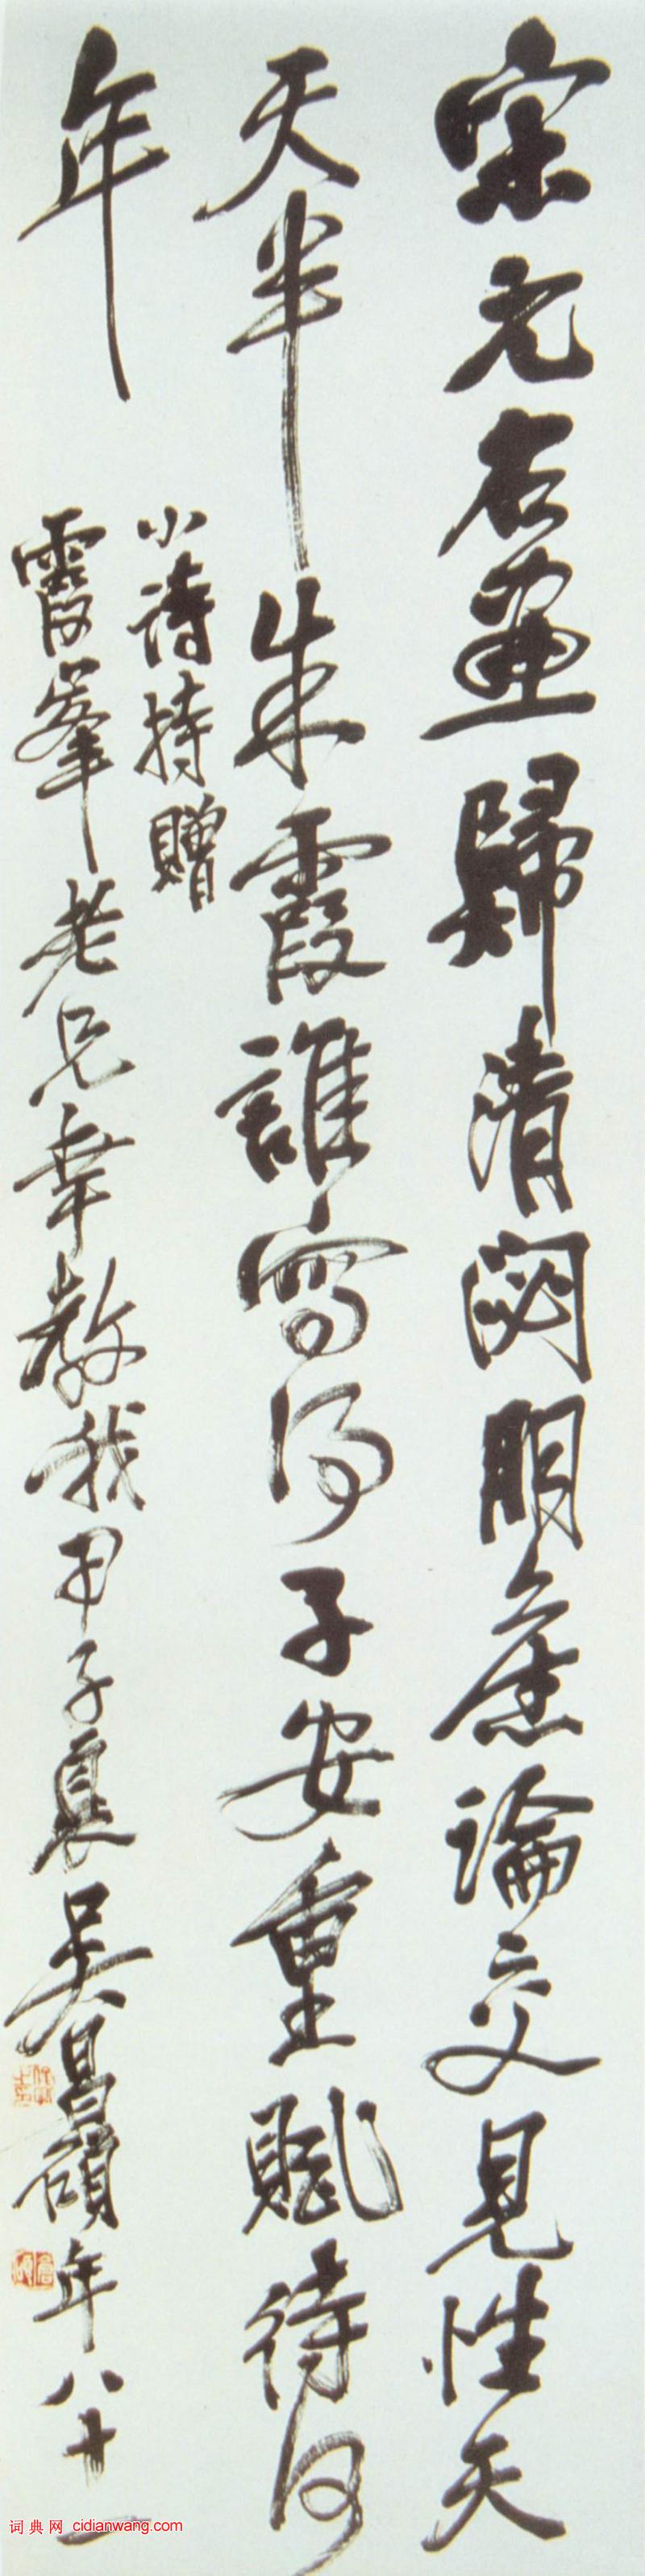 宋元名畫歸清閟朋舊論交見性天
天半朱霞誰寫得子安重賦待何
年
小詩持贈
霞峯老兄幸教我甲子夏吳昌碩年八十一
词典网 cidianwang.com